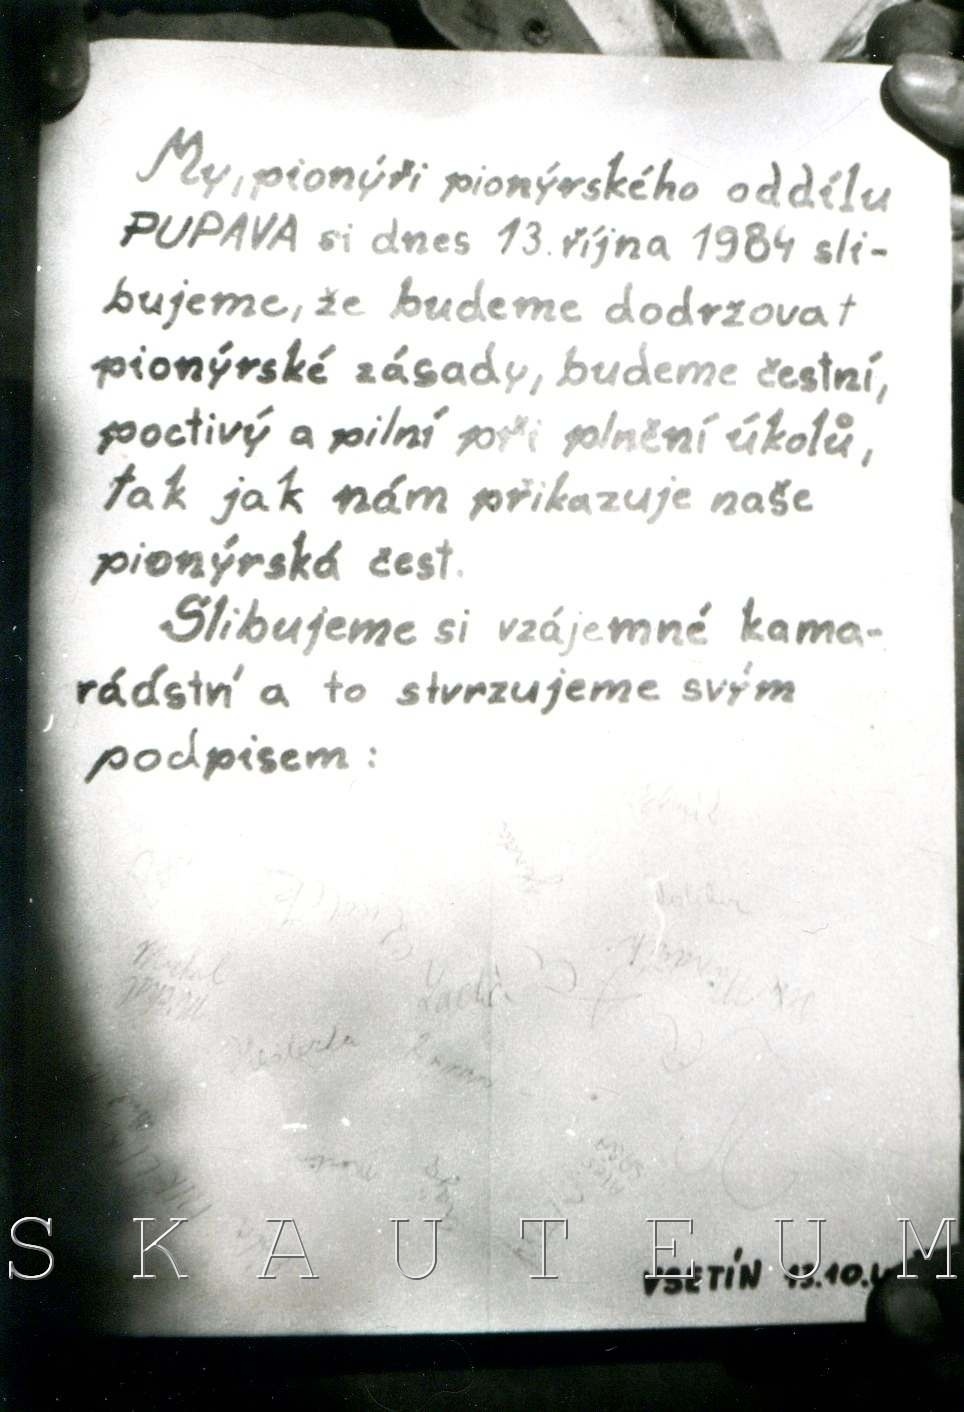 My, pionýři pionýrského oddílu
PUPAVA si dnes 13. října 1984 sli-
bujeme, že budeme dodrzovat
pionýrské zásady, budeme čestní,
poctivý a pilní při plnění úkolů,
tak jak nám přikazuje naše
pionýrská čest.
Slibujeme si vzájemné kama-
rádství a to stvrzujeme svým
podpisem:
SKAUTEUM
VSETÍN 13.10.